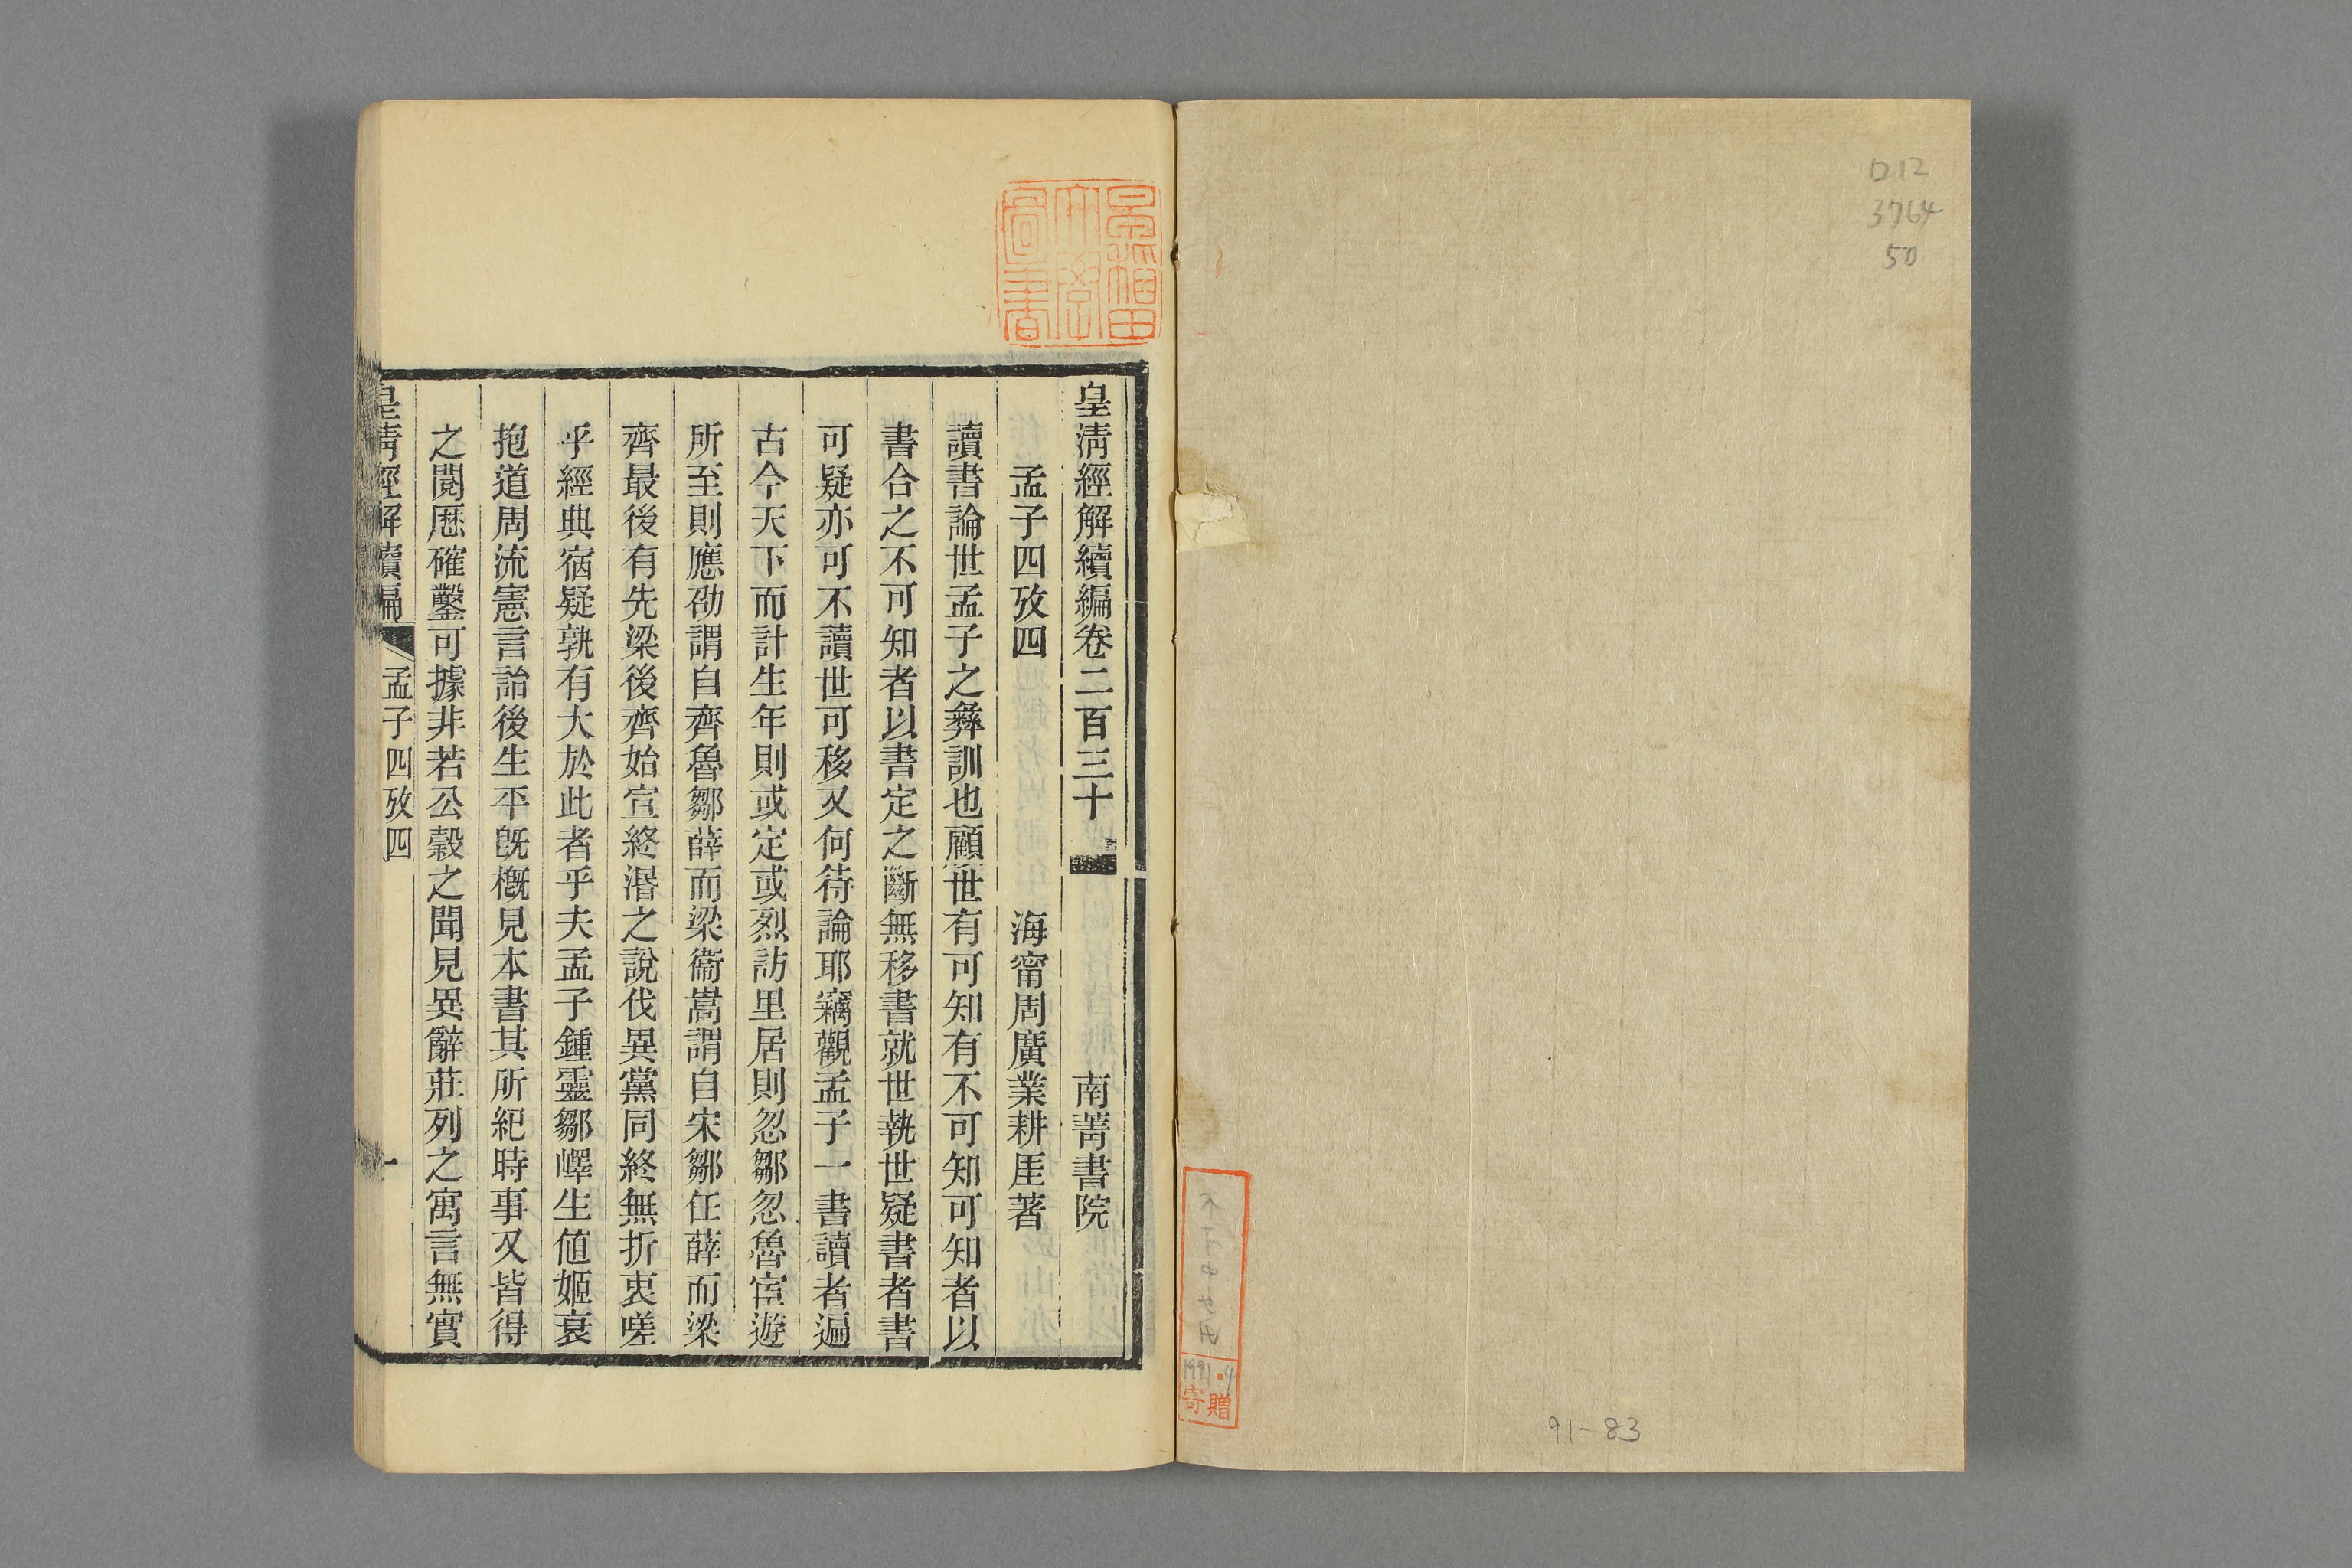 D12
3764
50
1991.4
寄贈
91-83
早稲田
大學
圖書
皇清經解續編卷二百三十
南菁書院
孟子四攷四
海甯周廣業耕厓著
讀書論世孟子之彝訓也顧世有可知有不可知可知者以
書合之不可知者以書定之斷無移書就世執世疑書者書
可疑亦可不讀世可移又何待論耶竊觀孟子一書讀者遍
古今天下而計生年則或定或烈訪里居則忽鄒忽魯宦遊
所至則應劭謂自齊魯鄒薛而梁衞嵩謂自宋鄒任薛而梁
齊最後有先梁後齊始宣終湣之說伐異黨同終無折衷嗟
乎經典宿疑孰有大於此者乎夫孟子鍾靈鄒嶧生値姬衰
抱道周流憲言詒後生平旣槪見本書其所紀時事又皆得
之閱厯確鑿可據非若公穀之聞見異辭莊列之寓言無實
皇清經解續編
孟子四攷四
一